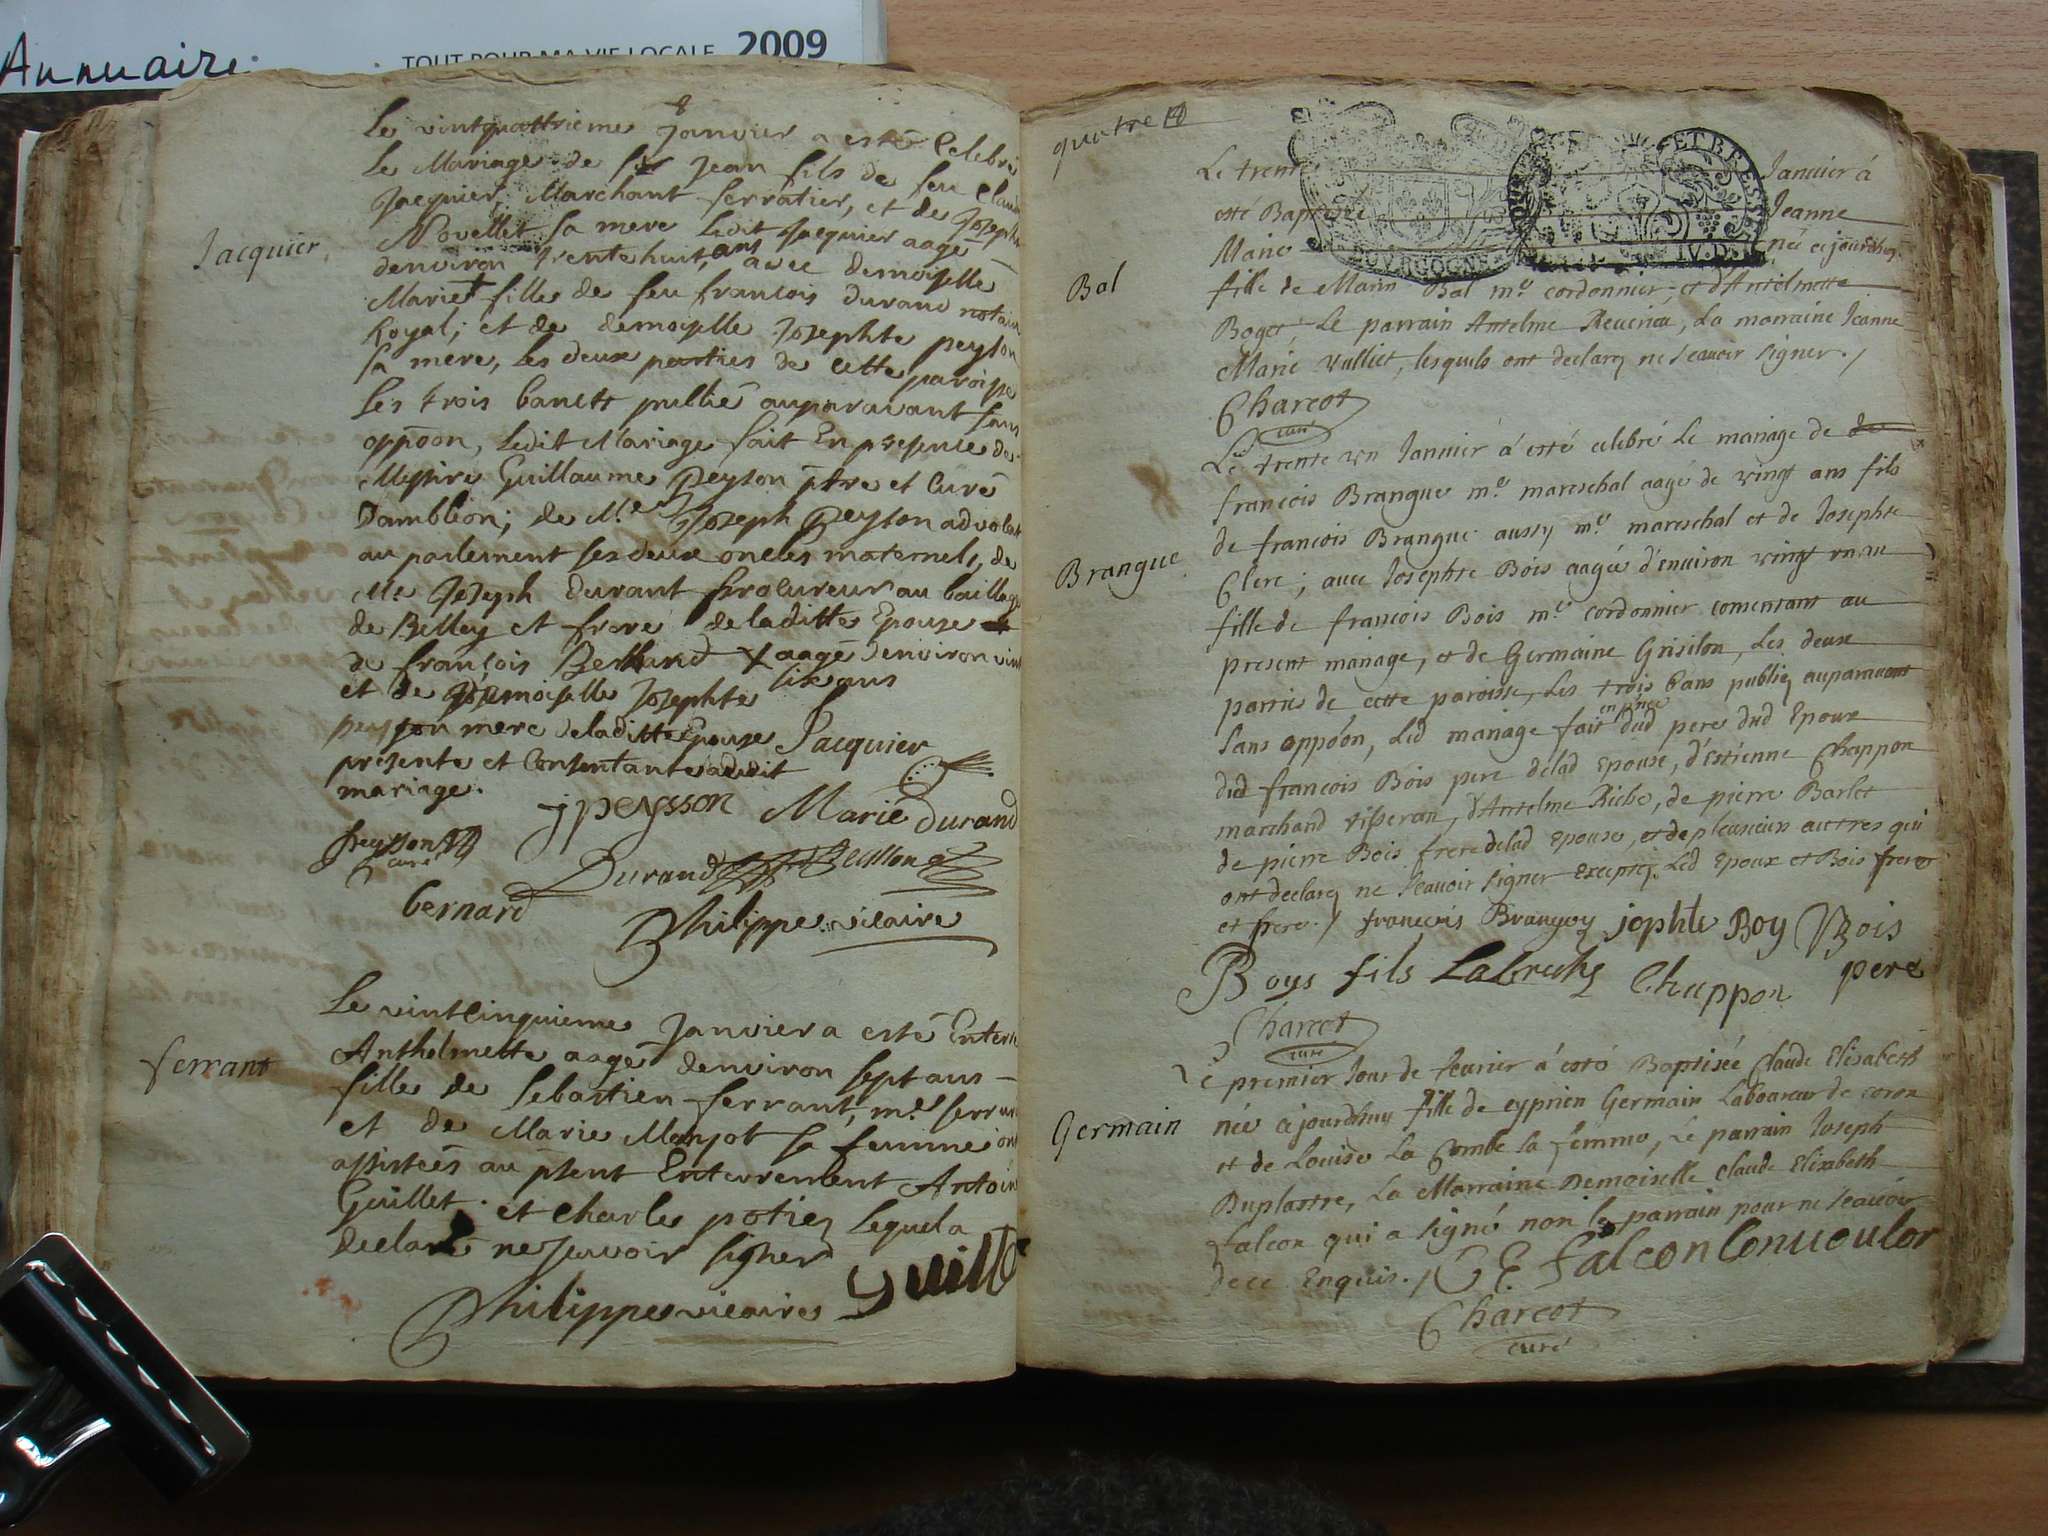 Annuaire
TOUT POUR MA VIE LOCALE 2009
Le vintquattrieme Janvier a esté Celebré
Le Mariage de Jean fils de feu Claude
Jacquier, Marchant ferratier, et de Josephte
Novellet sa mere Ledit Jacquier aagé
denviron trentehuit ans avec demoiselle
Jacquier
Marie fille de feu francois durand notaire
Royal; et de demoiselle Josephte peyson
sa mere, Les deux parties de cette paroisse
Les trois bancts publié auparavant sans
oppoon, Ledit Mariage fait En presence de
Messire Guillaume Peyson ptre et Curé
Dambleon; de Me Joseph Peyson advolat
au parlement ses deux oncles maternels, de
Me Joseph durant procureur au baillage
de Belley et frere de laditte Epouse
de francois Bernard aagé denviron vint
et de Demoiselle Josephte six ans
peyson mere deladitte Epouse Jacquier
presente et Consentante audit
mariage.
jpeysson Marie durand
peysson
curé
Durand
bernard
Philippe vicaire
Le vintcinquieme Janvier a esté Enterré
Anthelmette aagé denviron sept ans
ferrant
fille de Sebastien ferrant, me
et de Marie Monjot sa femme ont
assistées au psent Enterrement Antoine
Guillet et Charles potier Lequel a
declaré ne scavoir signer
Guillet
Philippe vicaire
quatre
Le trente Janvier á
esté Baptisée Jeanne
Marie née cejourdhuy
BOURGOGNE ET BRESSE
Bal
fille de Marin Bal me cordonnier, et d'Antelmette
Boget, Le parrain Antelme Revenu, La marraine Jeanne
Marie vulliet, lesquels ont declaré ne scavoir signer./
Charcot
curé
Le trente un Janvier á esté celebré Le mariage de
francois Brangue me mareschal aagé de vingt ans fils
de francois Brangue aussy me mareschal et de Josephte
Branque
Clerc; avec Josephte Bois aagée d'environ vingt un an
fille de francois Bois me cordonnier consentant au
present mariage, et de Germaine Grisilon, Les deux
parties de cette paroisse, Les trois bans publiez auparavant
Sans oppoon, Led mariage fait en pnce dud pere dud Epoux
dud francois Bois pere delad Epouse, d'Estienne Chappon
marchand tisseran, d'Antelme Riche, de pierre Barlet
de pierre Bois frere delad Epouse, et de plusieurs autres qui
ont declaré ne scavoir signer exceptez Led Epoux et Bois frere
et frere./ francois Brangoy jophte Boy Bois
Boys fils Labruche Chappon pere
Charcot
curé
Le premier Jour de fevrier á esté Baptisée Claude Elisabeth
Germain
née cejourdhuy fille de cyprien Germain Laboureur de coron
et de Louise La Combe sa femme, Le parrain Joseph
Duplastre, La Marraine Demoiselle Claude Elizabeth
falcon qui a signé non le parrain pour ne scavoir
de ce Enquis./ C E. falcon Conucoulor
Charcot
curé